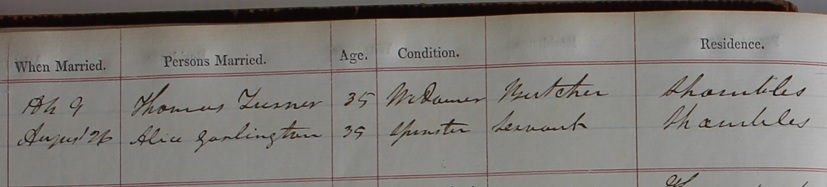 When Married. Persons Married. Age. Condition. Residence.
Thomas Turner 35 Widower Butcher Shambles
August 26 Alice Garlington 35 Spinster Servant Shambles